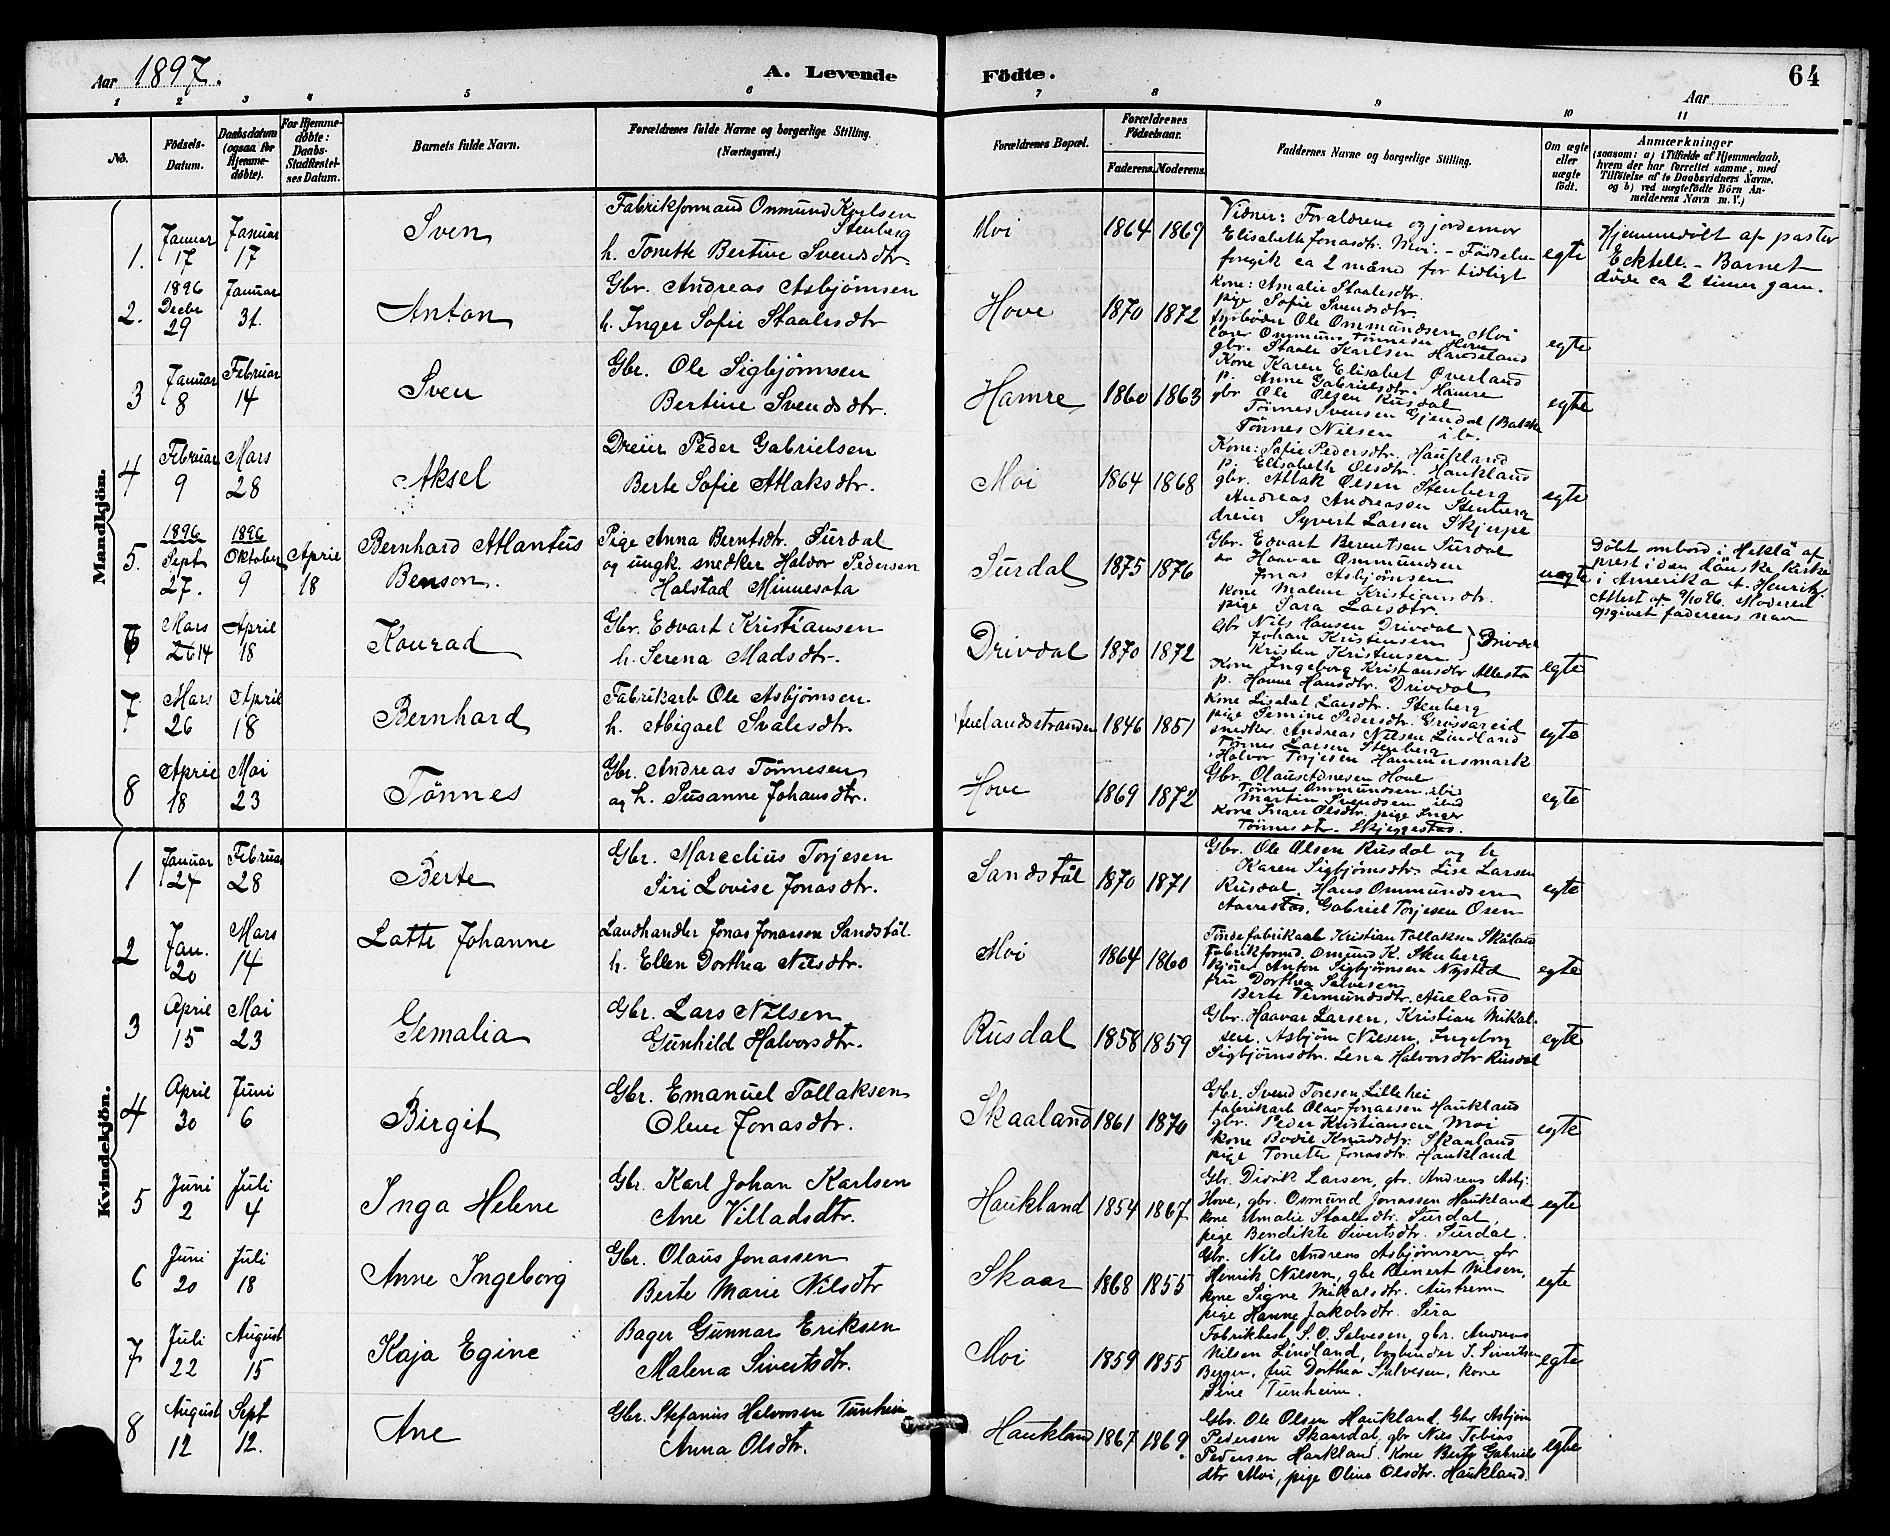 Aar 1897.
A. Levende
Födte.
64
Aar
1 2 3 4 5 6 7 8 9 10 11
No.
Födsels-Datum.
Daabsdatum (ogsaa for Hjemme-døbte).
For Hjemme-døbte: Daabs-Stadfæstel-ses Datum.
Barnets fulde Navn.
Forældrenes fulde Navne og borgerlige Stilling.
(Næringsvei.)
Forældrenes Bopæl.
Forældrenes Födselsaar.
Faderens. Moderens.
Faddernes Navne og borgerlige Stilling.
Om ægte eller uægte födt.
Anmærkninger
(saasom: a) i Tilfælde af Hjemmedaab,
hvem der har forrettet samme, med
Tilföielse af to Daabsvidners Navne,
og b) ved uægtefödte Börn An-
melderens Navn m. V.)
Mandkjön.
1. Januar 17 Januar 17
Sven
Fabrikformand Onmund Karlsen
Stenberg
h. Tonette Bertine Svendsdtr.
Moi 1864 1869
Vidner: Forældrene og jordemor
Elisabeth Jonasdtr. Moi. - Fødselen
foregik ca 2 måned for tidligt
egte
Hjemmedøbt af pastor
Ecktell. - Barnet
døde ca 2 timer gam.
2. 1896 Decbr 29 Januar 31.
Anton
Gbr. Andreas Asbjørnsen
h. Inger Sofie Staalesdtr
Hove 1870 1872
Kone: Amalie Staalesdtr.
pige Sofie Svendsdtr.
fyrbøder Ole Ommundsen Moi
Ommund Tønnesen Hove
gbr. Staale Karlsen Haudeland
egte
3 Januar 8 Februar 14
Sven
Gbr. Ole Sigbjørnsen
Bertine Svendsdtr.
Hamre 1860 1863
Kone Karen Elisabet Øverland
p. Anne Gabrielsdtr. Hamre
gbr Ole Olsen Rusdal
Tønnes Svensen Gjendal (Bakke
Tønnes Nilsen ib.
egte
4 Februar 9 Mars 28
Aksel
Dreier Peder Gabrielsen
Berte Sofie Atlaksdtr.
Moi 1864 1868
Kone: Sofie Pedersdtr. Haukland
p. Elisabeth Olsdtr. Haukland
gbr. Atlak Olsen Stenberg
Andreas Andreassen Stenberg
dreier Syvert Larsen Skjerpe
egte
5. 1896 Sept 27. 1896 Oktober 9 April 18
Bernhard Atlantus
Benson.
Pige Anna Berntsdtr. Surdal
og ungk. snedker Halvor Pedersen
Halstad Minnesota
Surdal 1875 1876
Gbr. Edvart Berentsen Surdal
Haavar Ommundsen
Jonas Asbjørnsen
Kone Malene Kristiansdtr.
pige Sara Larsdtr.
uegte
Døbt ombord i Hekla af
prest i den danske kirke
i Amerika A. Henrik.
Attest af 9/10 96. Moderen
opgivet faderens navn
6 Mars 2614 April 18
Konrad
Gbr. Edvart Kristiansen
h. Serena Madsdtr.
Drivdal 1870 1872
Gbr Nils Hansen Drivdal
Johan Kristensen
Kristen Kristensen } Drivdal
Kone Ingeborg Kristansdtr Allestad
p. Hanne Hansdtr. Drivdal
egte
7 Mars 26 April 18
Bernhard
Fabrikarb Ole Asbjørnsen
h. Abigael Svalesdtr.
1846 1851
Kone Lisabet Larsdtr. Stenberg
pige Semine Pedersdtr. Grøssareid
snedker. Andreas Nilsen Lindland
Tønnes Larsen Stenberg
Halvor Torjesen Hammersmark
egte
8 April 18 Mai 23
Tønnes
Gbr. Andreas Tønnesen
og h. Susanne Johansdtr.
Hove 1869 1872
Gbr. Hove
Tønnes Ommundsen ibid
Martin Svendsen ibid
Kone Inger Olsdtr. pige Inger
Tønnesdtr. Skjeggestad.
egte
Kvindekjön.
1 Januar 27 Februar 28
Berte
Gbr. Marcelius Torjesen
Siri Lovise Jonasdtr.
Sandstøl 1870 1871
Gbr. Ole Olsen Rusdal og h
Karen Sigbjørnsdtr. Lise Larsen
Rusdal. Hans Ommundsen
Aarrestad. Gabriel Torjesen Osen
egte
2 Jan. 20 Mars 14
Lotte Johanne
Landhandler Jonas Jonassen Sandstøl
h. Ellen Dorthea Nilsdtr.
Moi 1864 1860
Tøndefabrikant Kristian Tollaksen Skåland
Fabrikformd. Omund K. Stenberg
Anton Sigbjørnsen Nysted
fru Dorthea Salvesen
Berte Vermundsdtr. Aueland
egte
3 April 15 Mai 23
Gemalia
Gbr. Lars Nilsen
Gunhild Halvorsdtr.
Rusdal 1858 1859
Gbr. Haavar Larsen, Kristian Mikal-
sen. Asbjørn Nilsen, Ingeborg
Sigbjørnsdtr. Lena Halvorsdtr Rusdal
egte
4 April 30 Juni 6
Birgit
Gbr. Emanuel Tollaksen
Olene Jonasdtr.
Skaaland 1861 1870
Gbr. Svend Toresen Lillehei
fabrikarb Olav Jonassen Haukland
gbr. Peder Kristiansen Moi
kone Bodil Knudsdtr. Skaaland
pige Tonette Jonasdtr. Haukland
egte
5 Juni 2 Juli 4
Inga Helene
Gbr. Karl Johan Karlsen
Ane Villadsdtr.
Haukland 1854 1867
Gbr. Didrik Larsen, gbr. Andreas Asbj.
Hove, gbr. Osmund Jonassen Haukland
kone Amalie Staalesdtr. Surdal,
pige Bendikte Sivertsdtr. Surdal.
egte
6 Juni 20 Juli 18
Anne Ingeborg
Gbr. Olaus Jonassen
Berte Marie Nilsdtr
Skaar 1868 1855
Gbr. Nils Andreas Asbjørnsen, gbr
Henrik Nilsen, gbr Reinert Nilsen,
kone Signe Mikalsdtr. Austrem
pige Hanne Jakobsdtr. Sira
egte
7 Juli 22 August 15
Kaja Egine
Bager Gunnar Eriksen
Malena Sivertsdtr.
Moi 1859 1855
Fabrikbest. S. O. Salvesen, gbr. Andreas
Nilsen Lindland, bogbinder J. Sivertsen
Berger, fru Dorthea Salvesen, kone
Sine Tunheim.
egte
8 August 12 Sept 12.
Ane
Gbr. Stefanus Halvorsen Tunheim
Anna Olsdtr.
Haukland 1867 1869.
Gbr. Ole Olsen Haukland. Gbr Asbjørn
Pedersen Skaardal, gbr Nils Tobias
Pedersen Haukland. Kone Berte Gabriels
dtr Moi, pige Oline Olsdtr. Haukland.
egte